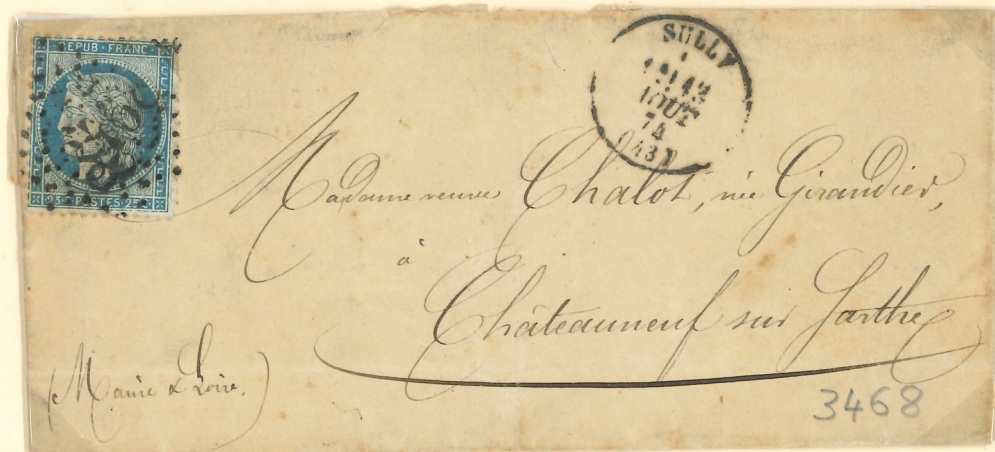 REPUB·FRANC·
25 C POSTES 25 C
SULLY
12
AOUT
74
(43)
Madame veuve Chalot, née Girandier,
à
Châteauneuf sur Sarthe
(Maine & Loire.)
3468